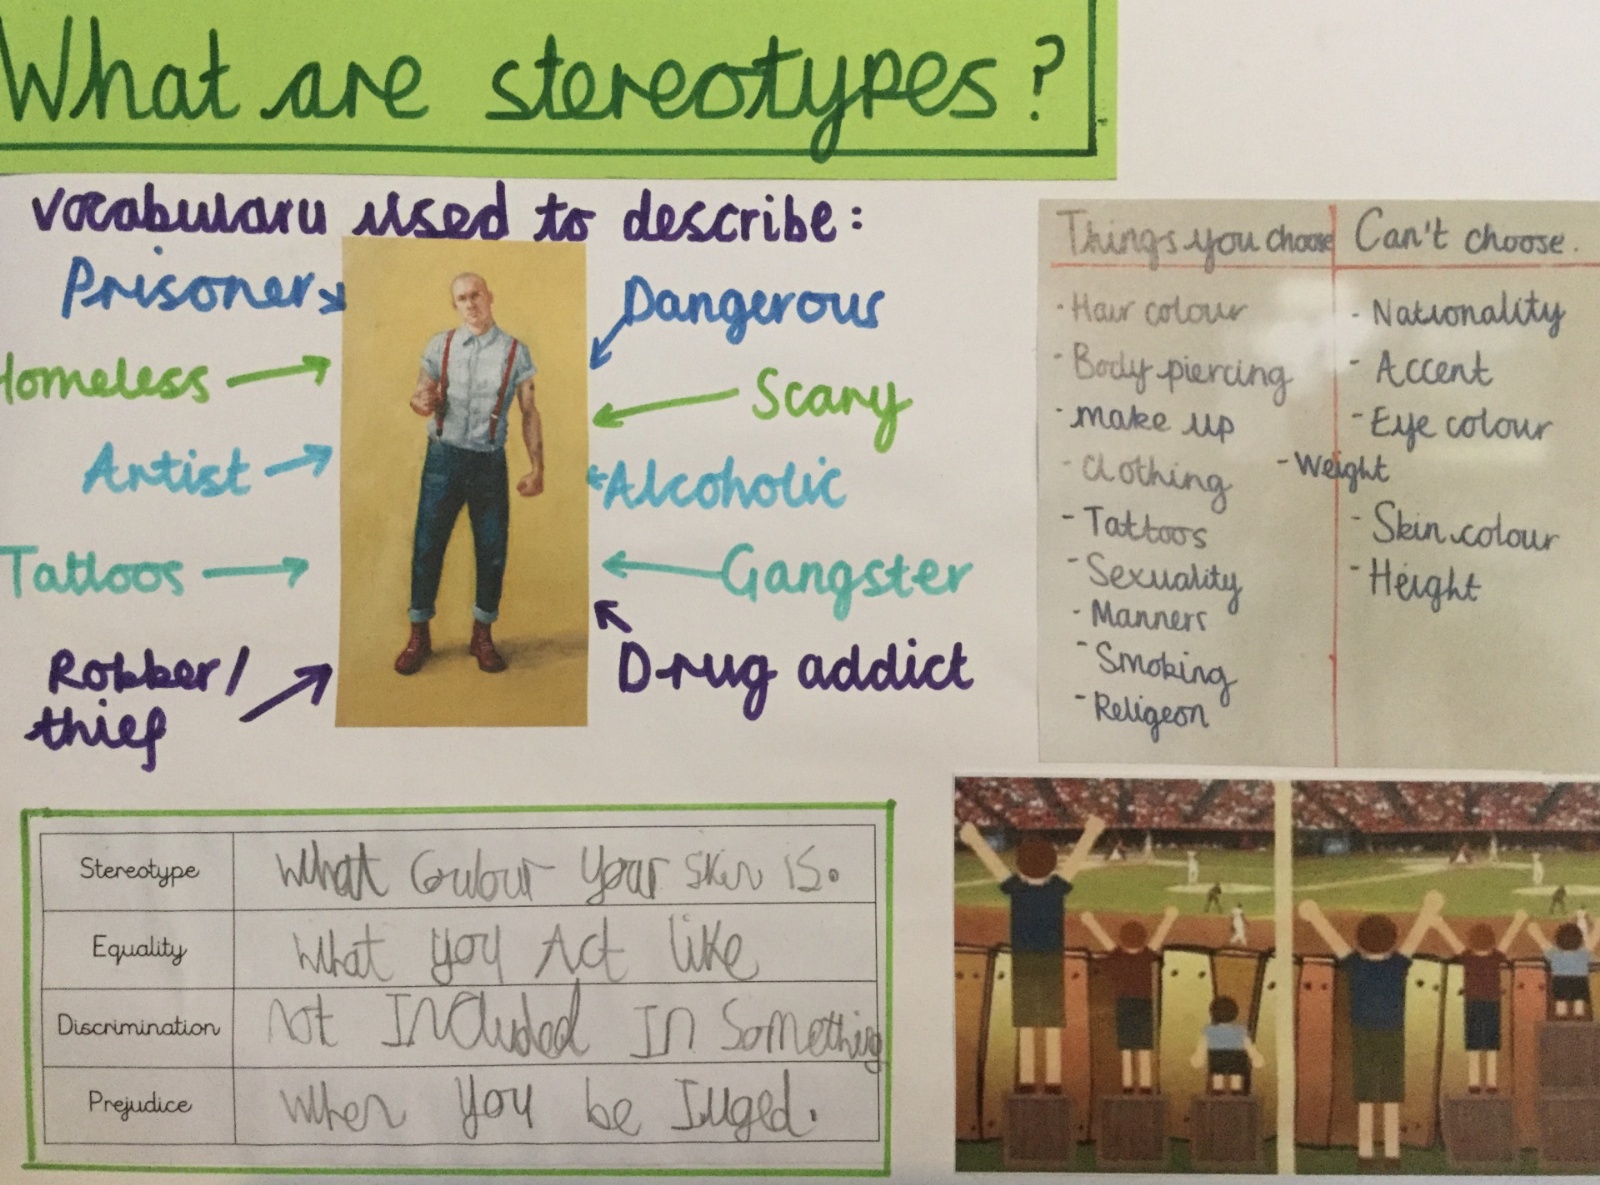 What are stereotypes?
vocabulary used to describe:
Prisoner
Homeless
Artist
Tattoos
Robber/
thief
Dangerous
Scary
Alcoholic
Gangster
Drug addict
Things you choose
- Hair colour
- Body piercing
- make up
- Clothing
- Tattoos
- Sexuality
- Manners
- Smoking
- Religeon
- Weight
Can't choose.
- Nationality
- Accent
- Eye colour
- Skin colour
- Height
Stereotype
What Colour your skin is.
Equality
What you Act like
Discrimination
Not Included In Something
Prejudice
When you be Juged.